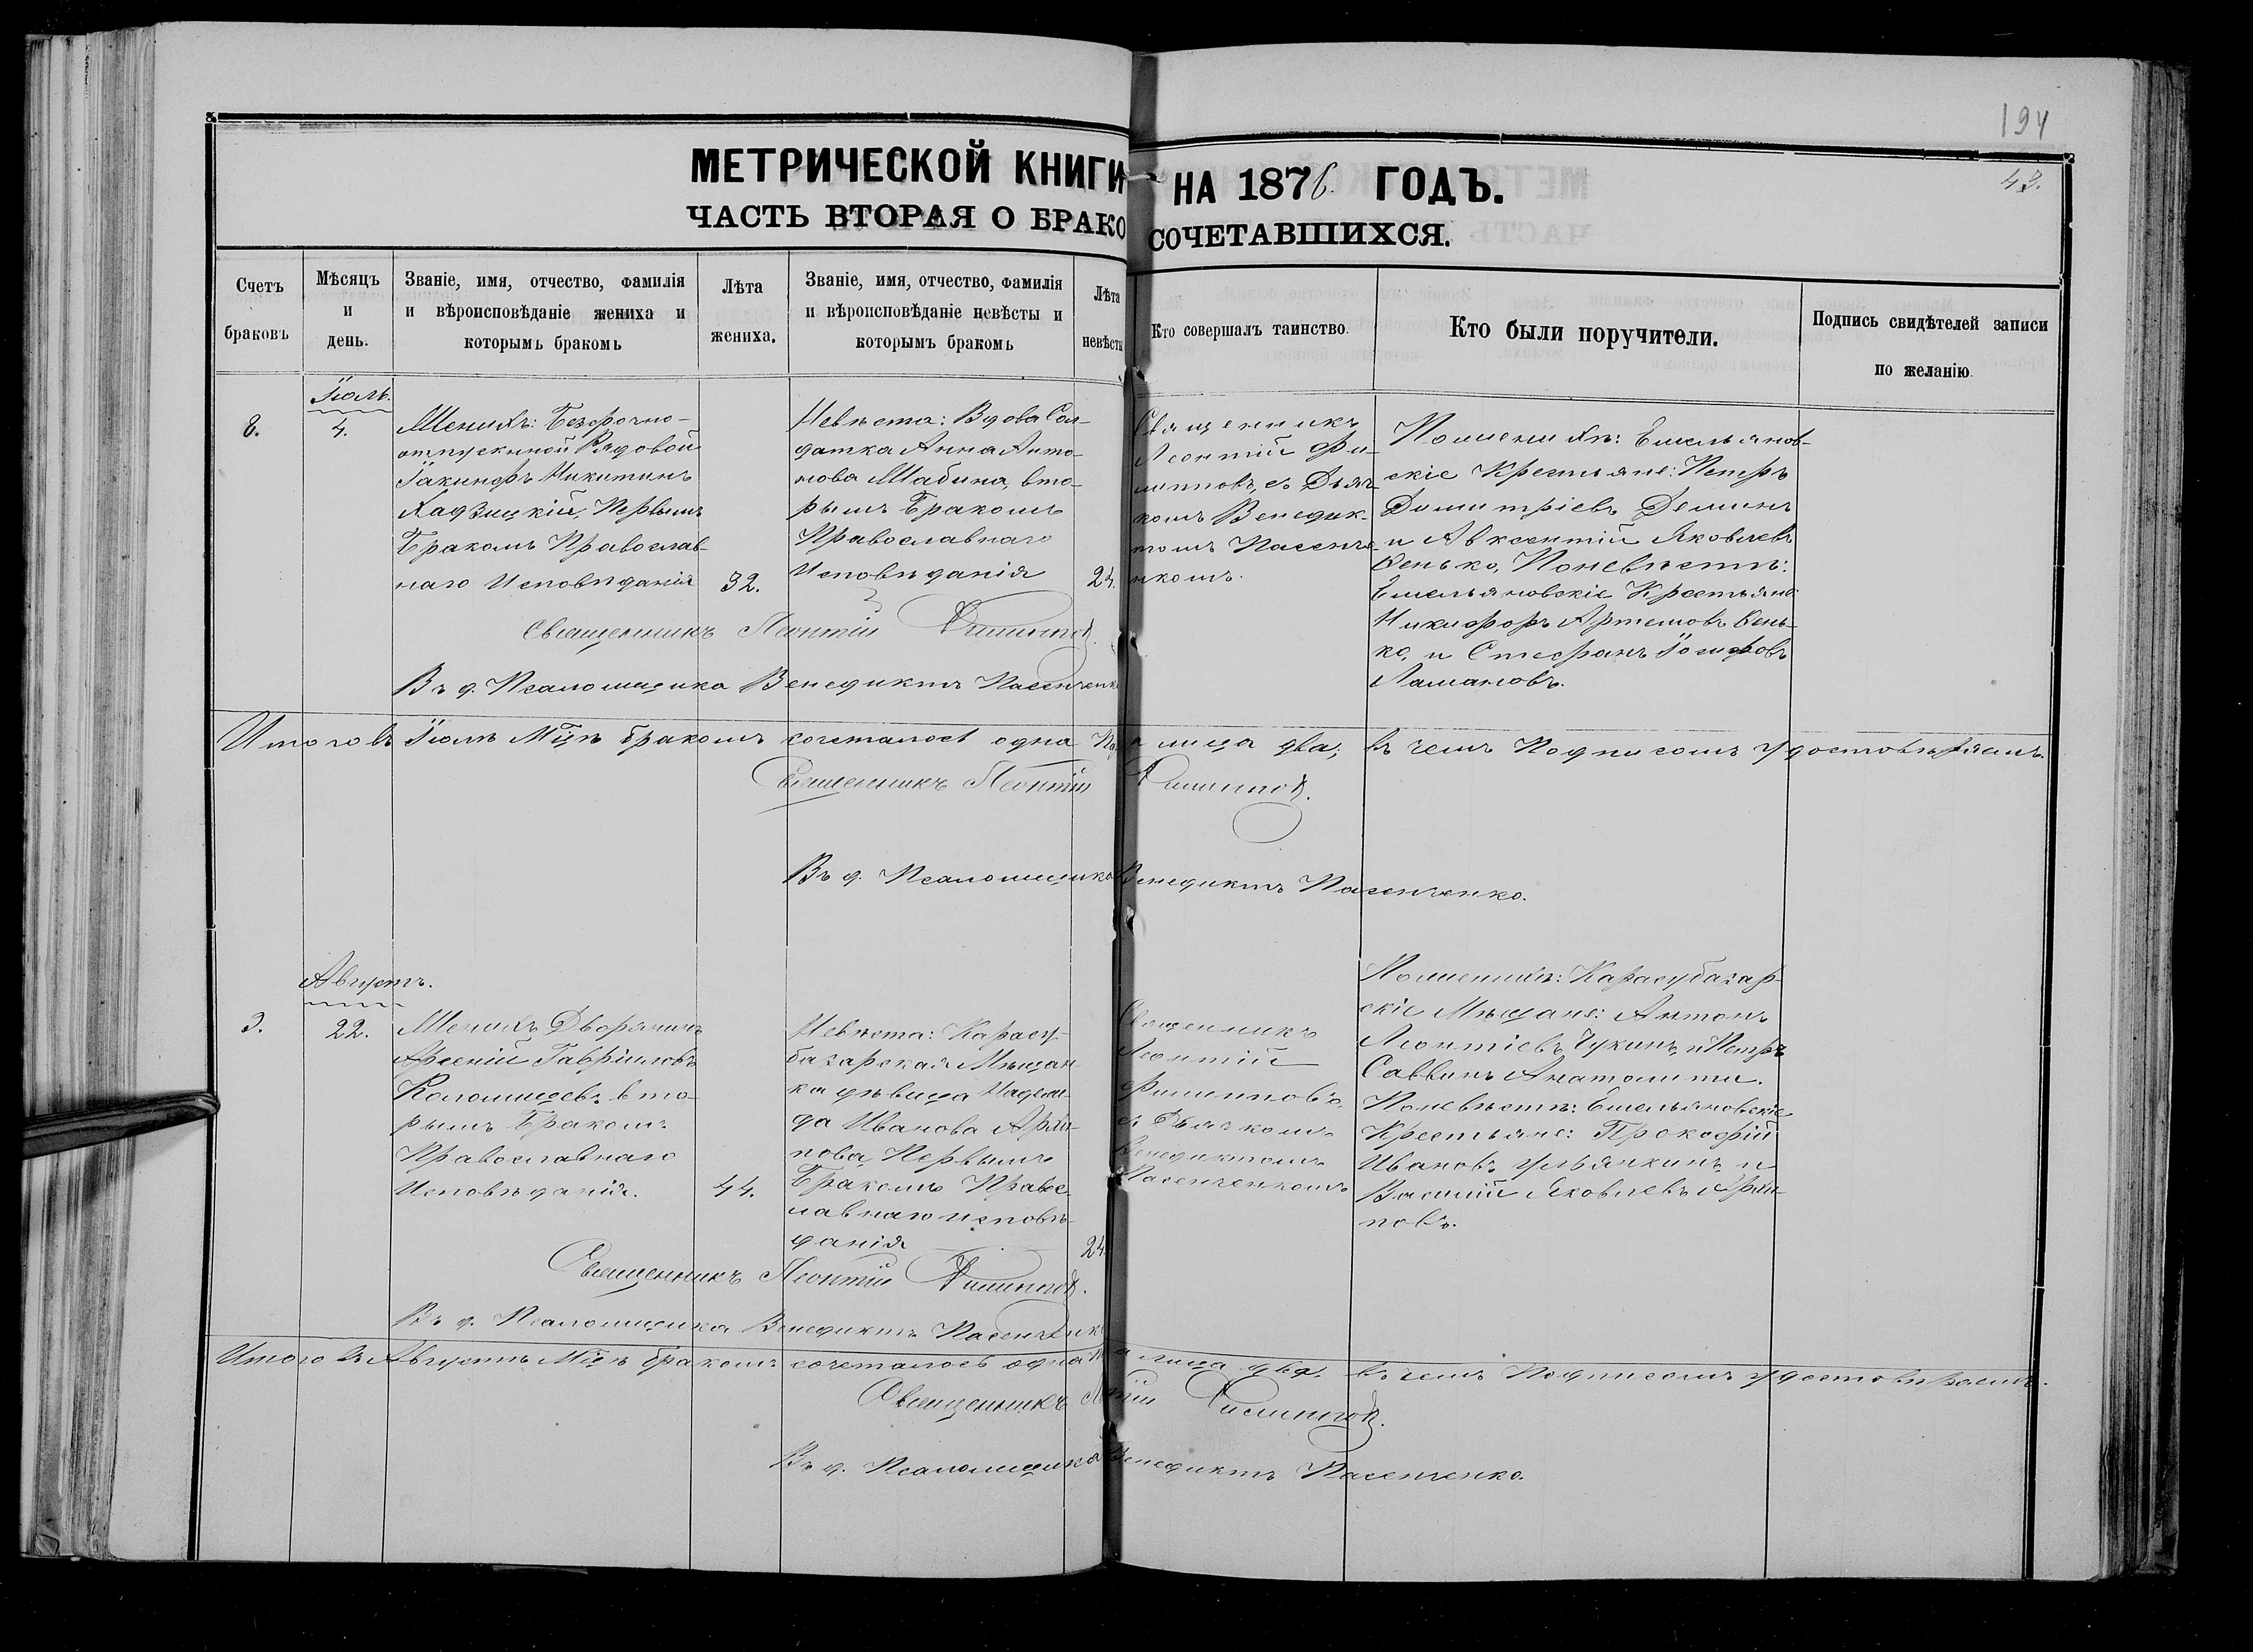 194
43.
МЕТРИЧЕСКОЙ КНИГИ НА 1876. ГОДЪ.
ЧАСТЬ ВТОРАЯ О БРАКОСОЧЕТАВШИХСЯ.
Счетъ
браковъ
Мѣсяцъ
и
день.
Званіе, имя, отчество, фамилія
и вѣроисповѣданіе жениха и
которымъ бракомъ
Лѣта
жениха.
Званіе, имя, отчество, фамилія
и вѣроисповѣданіе невѣсты и
которымъ бракомъ
Лѣта
невѣсты
Кто совершалъ таинство.
Кто были поручители.
Подпись свидѣтелей записи
по желанію.
Іюль.
8.
4.
Женихъ: Безсрочно-
отпускной Рядовой
Іакинфъ Никитинъ
Хадзицкій, Первымъ
Бракомъ Православ-
наго Исповѣданія
32.
Невѣста: Вдова Сол-
датка Анна Анто-
нова Шабина, вто-
рымъ Бракомъ
Православнаго
Исповѣданія
24.
Священникъ
Леонтій Фи-
липповъ, съ Дьяч-
комъ Венедик-
томъ Пасенче-
нкомъ.
По женихѣ: Емельянов-
скіе Крестьяне: Петръ
Димитріевъ Деминъ
и Авксентій Яковлевъ
Венько, По невѣстѣ:
Емельяновскіе Крестьяне
Никифоръ Артемовъ Вень-
ко, и Стефанъ Іосифовъ
Ламановъ.
Священникъ Леонтій Филипповъ.
Въ д. Псаломщика Венедиктъ Пасенченко
Итого въ Іюлѣ Мцѣ бракомъ сочеталось одна Пара лица два; въ чемъ Подписомъ удостовѣряемъ.
Священникъ Леонтій Филипповъ.
Въ д. Псаломщика Венедиктъ Пасенченко.
Августъ.
9.
22.
Женихъ Дворянинъ
Арсеній Гавріиловъ
Коломицевъ вто-
рымъ Бракомъ
Православнаго
Исповѣданія.
44.
Невѣста: Карасу-
базарская Мѣщан-
ка дѣвица Надеж-
да Иванова
Первымъ
Бракомъ Право-
славнаго исповѣ-
данія
24
Священникъ
Леонтій
Филипповъ
съ Дьячкомъ
Венедиктомъ
Пасенченкомъ
По женихѣ: Карасубазар-
скіе Мѣщане: Антонъ
Леонтіевъ Чукинъ, и Петръ
Саввинъ
По невѣстѣ: Емельяновскіе
Крестьяне: Прокофій
Ивановъ Ульянкинъ и
Василій Яковлевъ
повъ.
Священникъ Леонтій Филипповъ.
Въ д. Псаломщика Венедиктъ Пасенченко
Итого въ Августѣ Мцѣ бракомъ сочеталось одна Пара лица два. въ чемъ Подписомъ удостовѣряемъ.
Священникъ Леонтій Филипповъ.
Въ д. Псаломщика Венедиктъ Пасенченко.